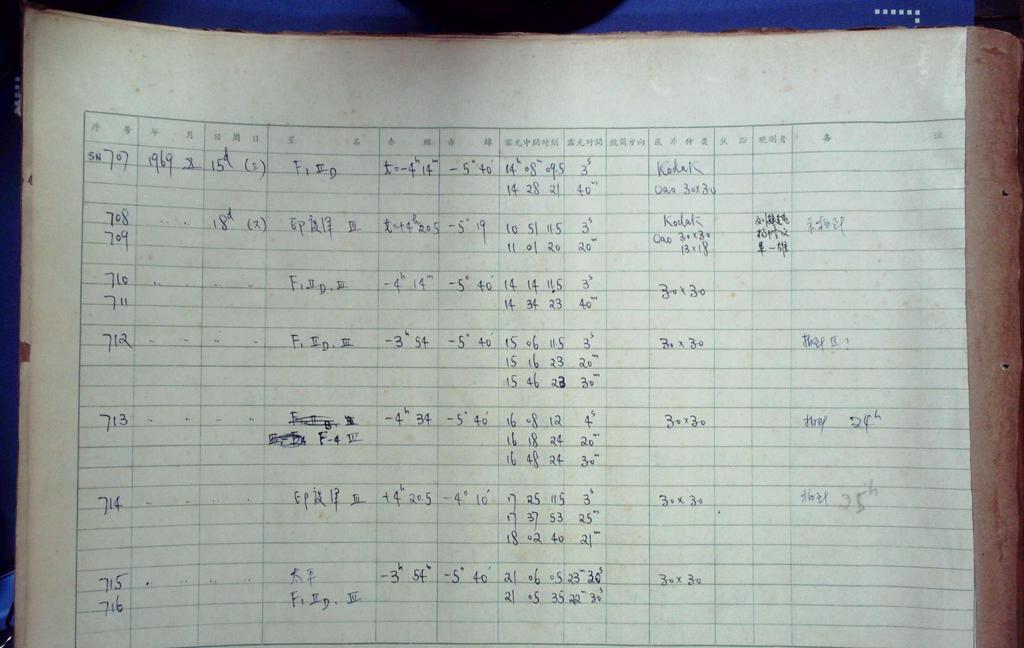 序 号 年 月 日 周 日 星 名 赤 经 赤 纬 露光中间时刻 露光时间 镜筒方向 底 片 种 类 焦 距 观测者 备 注
SN 707 1969 X 15d (三) F, II D t=-4h 14m -5° 40' 14h 08m 09.5 3s Kodak
14 28 21 40m Oao 30×30
708 18d (六) 印度洋 III t=+4h 20.5 -5° 19 10 51 11.5 3s Kodak
709 11 01 20 20m Oao 30×30
13×18
710 F, II D. III -4h 14m -5° 40' 14 14 11.5 3s 30×30
711 14 34 23 40m
712 F, II D. III -3h 54 -5° 40' 15 06 11.5 3s 30×30
15 16 23 20m
15 46 23 30m
713 -4h 34 -5° 40' 16 08 12 4s 30×30 24h
F-4 III 16 18 24 20m
16 48 24 30m
714 印度洋 III +4h 20.5 -4° 10' 17 25 11.5 3s 30×30 25h
17 37 53 25m
18 02 40 21m
715 太平 -3h 54m -5° 40' 21 06 05 23m 30s 30×30
716 F, II D. III 21 05 35 22m 30s